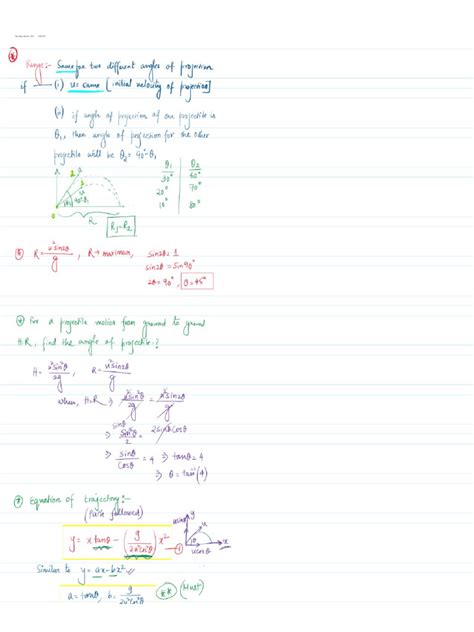 Range:- Same for two different angles of projection
if (i) u = same [initial velocity of projection]
(ii) if angle of projection of one projectile is
θ₁, then angle of projection for the other
projectile will be θ₂ = 90°-θ₁
θ₁ θ₂
30° 60°
20° 70°
10° 80°
R
R₁=R₂
⑤ R = u²sin2θ/g , R→ maximum, sin2θ = 1
sin2θ = sin90°
2θ = 90°, θ = 45°
For a projectile motion from ground to ground
H=R, find the angle of projectile?
H = u²sin²θ/2g , R = u²sin2θ/g
when, H=R ⇒ u²sin²θ/2g = u²sin2θ/g
⇒ sin²θ/2 = 2sinθcosθ
⇒ sinθ/cosθ = 4 ⇒ tanθ = 4
⇒ θ = tan⁻¹(4)
⑦ Equation of trajectory:-
(Path followed)
y = x tanθ - (g/2u²cos²θ) x² —①
usinθ
u
θ
ucosθ
x
Similar to y = ax-bx²
a = tanθ, b = g/2u²cos²θ (**) (Must)